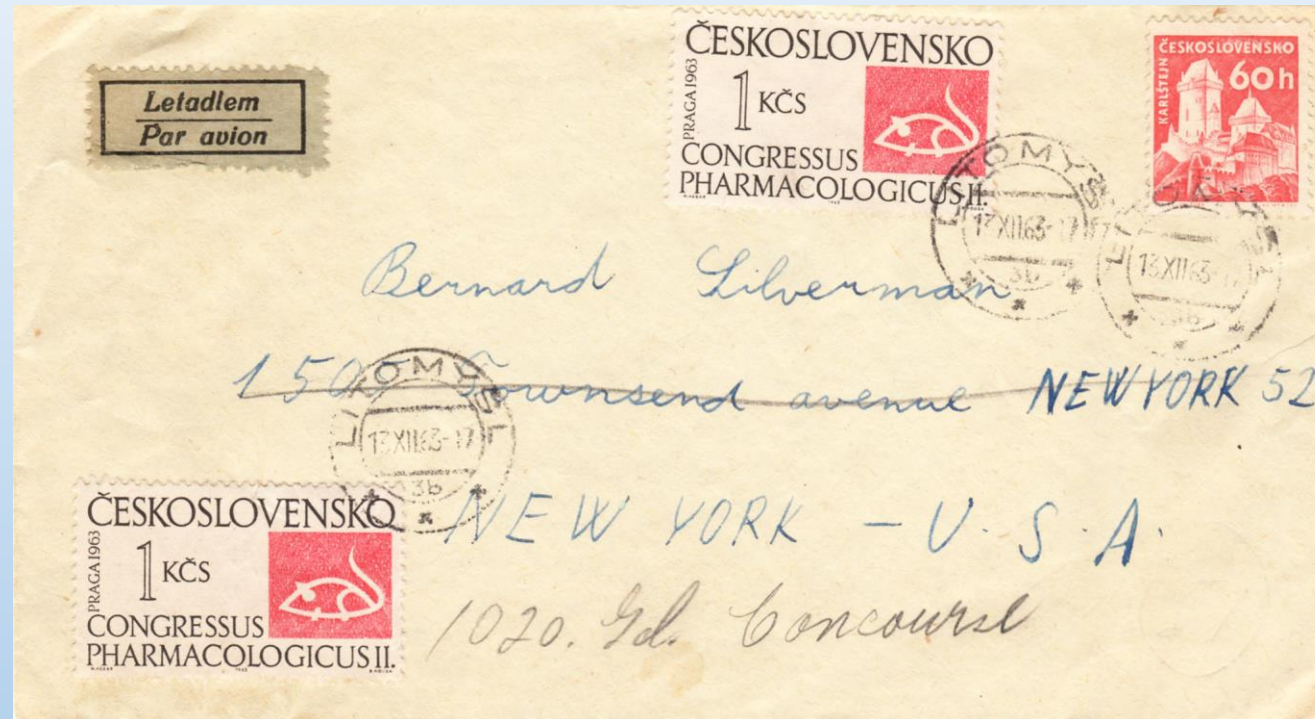 Letadlem
Par avion
ČESKOSLOVENSKO
PRAGA 1963
1 KČS
CONGRESSUS
PHARMACOLOGICUS II.
ČESKOSLOVENSKO
KARLŠTEJN
60 h
LITOMYŠL
13XII63-17
3b
LITOMYŠL
13XII63
3b
Bernard Silverman
Townsend avenue NEW YORK 52
LITOMYŠL
13XII63-17
3b
NEW YORK - U.S.A.
1020. Gd. Concourse
ČESKOSLOVENSKO
PRAGA 1963
1 KČS
CONGRESSUS
PHARMACOLOGICUS II.